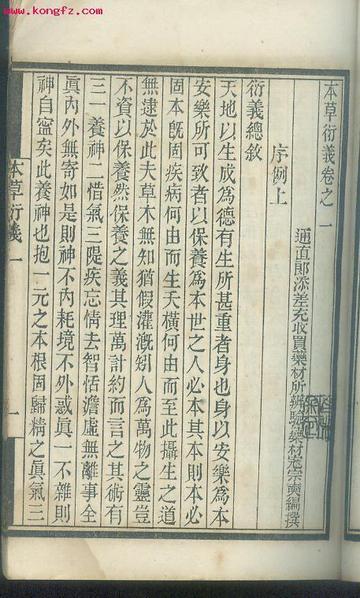 www.kongfz.com
本草衍義卷之一
通直郎添差充收買藥材所辨驗藥材寇宗奭編撰
序例上
衍義總敘
天地以生成為德有生所甚重者身也身以安樂為本
安樂所可致者以保養為本世之人必本其本則本必
固本既固疾病何由而生夭橫何由而至此攝生之道
無逮於此夫草木無知猶假灌溉矧人為萬物之靈豈
不資以保養然保養之義其理萬計約而言之其術有
三一養神二惜氣三隄疾忘情去智恬澹虛無離事全
眞內外無寄如是則神不內耗境不外惑眞一不雜則
神自寧矣此養神也抱一元之本根固歸精之眞氣三
本草衍義 一
一